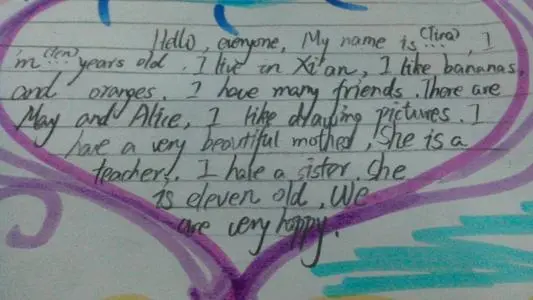 Hello, everyone, My name is (Tina) ..., I
'm (ten) ... years old. I live in Xi'an, I like bananas,
and oranges, I have many friends. There are
May and Alice, I like drawing pictures. I
have a very beautiful mother, She is a
teachers. I have a sister. She
is eleven old, We
are very happy.